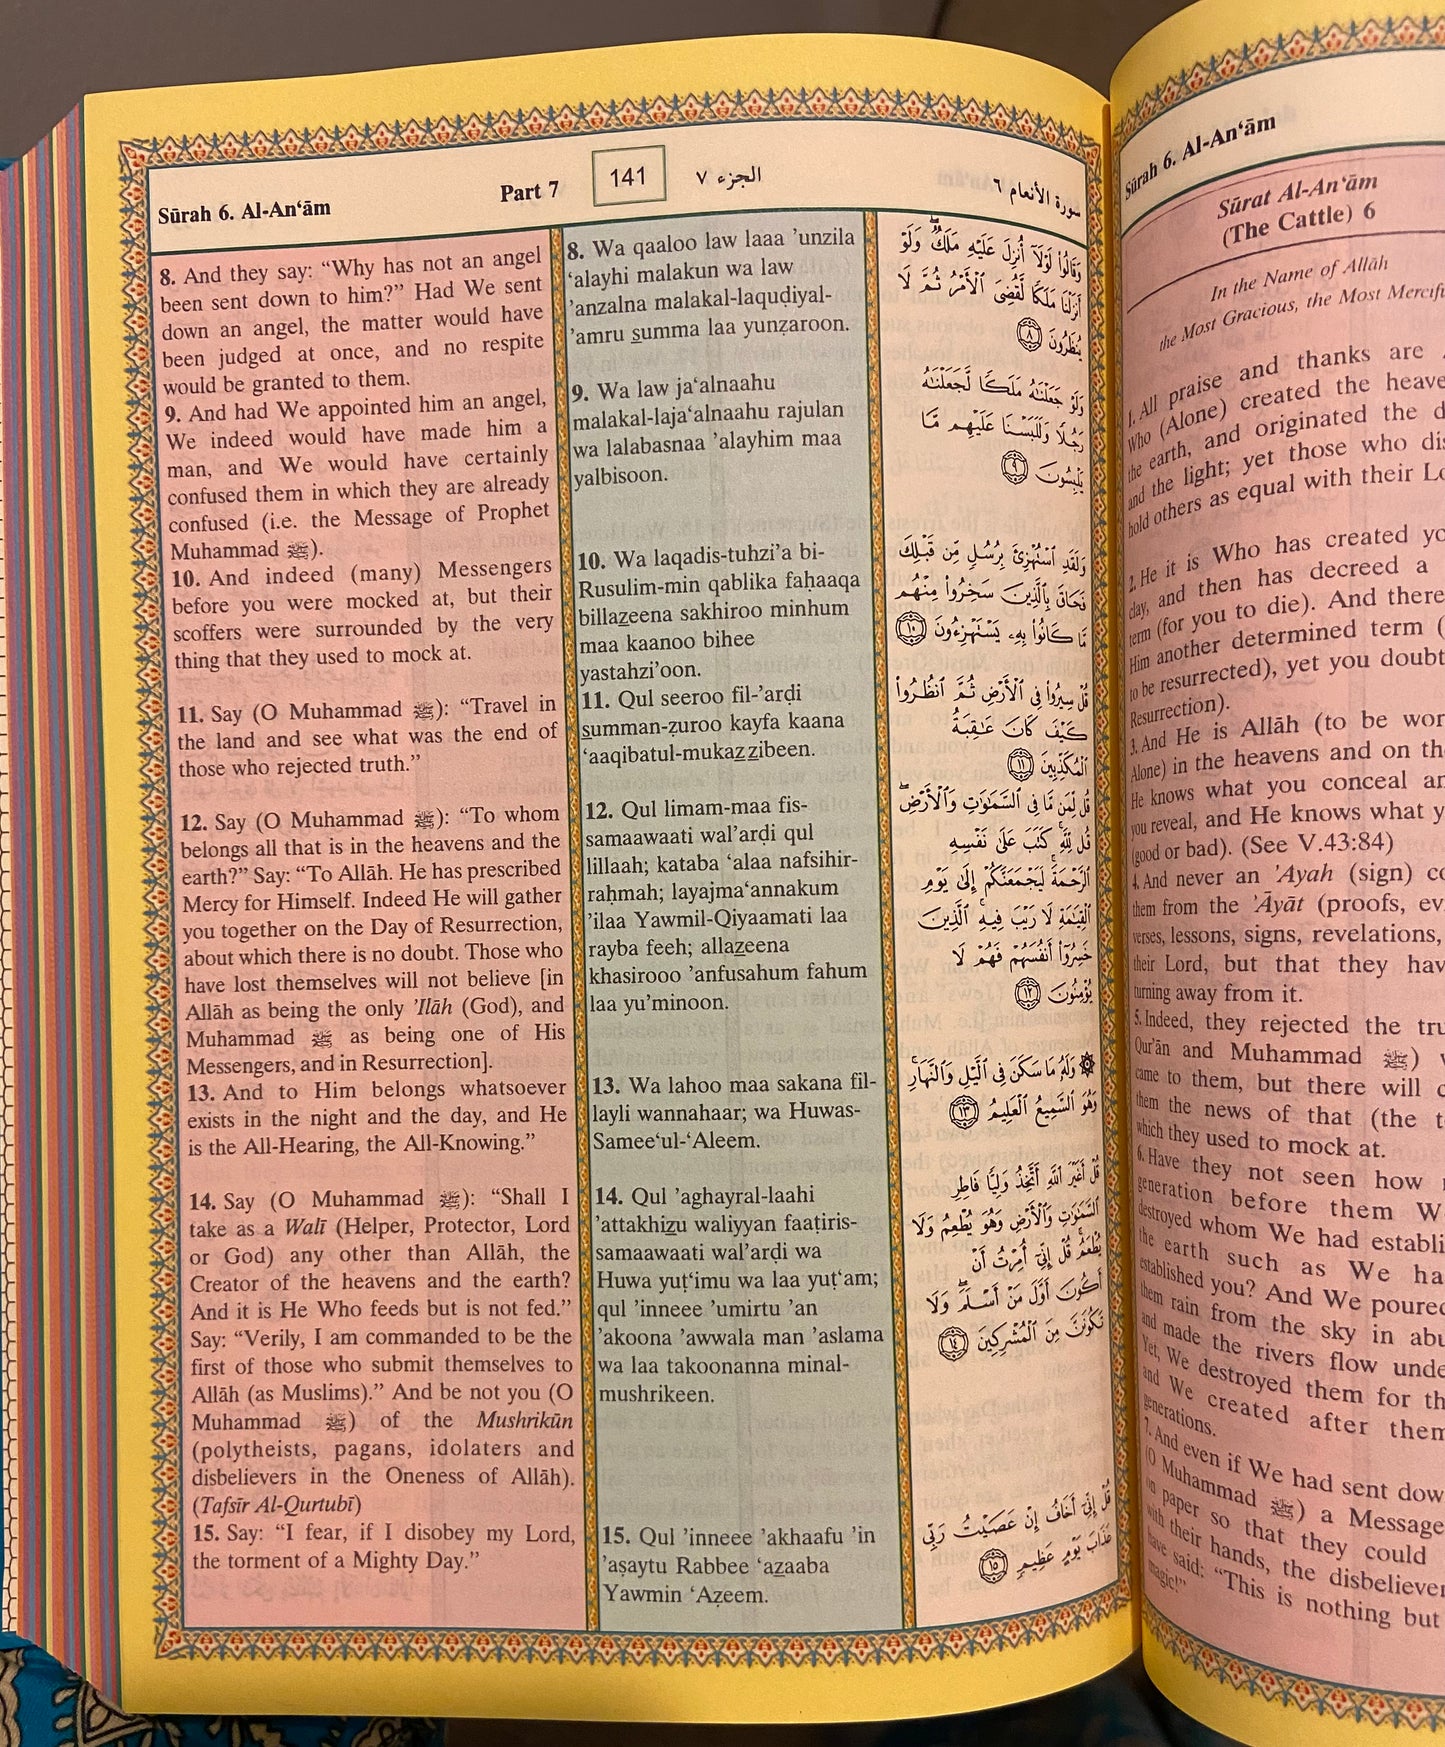 Sūrah 6. Al-An‘ām
Part 7
141
الجزء ٧
سورة الأنعام ٦
8. And they say: “Why has not an angel
been sent down to him?” Had We sent
down an angel, the matter would have
been judged at once, and no respite
would be granted to them.
9. And had We appointed him an angel,
We indeed would have made him a
man, and We would have certainly
confused them in which they are already
confused (i.e. the Message of Prophet
Muhammad ﷺ).
10. And indeed (many) Messengers
before you were mocked at, but their
scoffers were surrounded by the very
thing that they used to mock at.
11. Say (O Muhammad ﷺ): “Travel in
the land and see what was the end of
those who rejected truth.”
12. Say (O Muhammad ﷺ): “To whom
belongs all that is in the heavens and the
earth?” Say: “To Allāh. He has prescribed
Mercy for Himself. Indeed He will gather
you together on the Day of Resurrection,
about which there is no doubt. Those who
have lost themselves will not believe [in
Allāh as being the only ’Ilāh (God), and
Muhammad ﷺ as being one of His
Messengers, and in Resurrection].
13. And to Him belongs whatsoever
exists in the night and the day, and He
is the All-Hearing, the All-Knowing.”
14. Say (O Muhammad ﷺ): “Shall I
take as a Walī (Helper, Protector, Lord
or God) any other than Allāh, the
Creator of the heavens and the earth?
And it is He Who feeds but is not fed.”
Say: “Verily, I am commanded to be the
first of those who submit themselves to
Allāh (as Muslims).” And be not you (O
Muhammad ﷺ) of the Mushrikūn
(polytheists, pagans, idolaters and
disbelievers in the Oneness of Allāh).
(Tafsīr Al-Qurtubī)
15. Say: “I fear, if I disobey my Lord,
the torment of a Mighty Day.”
8. Wa qaaloo law laaa ’unzila
‘alayhi malakun wa law
’anzalna malakal-laquḍiyal-
’amru summa laa yunẓaroon.
9. Wa law ja‘alnaahu
malakal-laja‘alnaahu rajulan
wa lalabasnaa ’alayhim maa
yalbisoon.
10. Wa laqadis-tuhzi’a bi-
Rusulim-min qablika faḥaaqa
billazeena sakhiroo minhum
maa kaanoo bihee
yastahzi’oon.
11. Qul seeroo fil-’arḍi
summan-ẓuroo kayfa kaana
‘aaqibatul-mukazzibeen.
12. Qul limam-maa fis-
samaawaati wal’arḍi qul
lillaah; kataba ‘alaa nafsihir-
raḥmah; layajma‘annakum
’ilaa Yawmil-Qiyaamati laa
rayba feeh; allazeena
khasirooo ’anfusahum fahum
laa yu’minoon.
13. Wa lahoo maa sakana fil-
layli wannahaar; wa Huwas-
Samee‘ul-‘Aleem.
14. Qul ’aghayral-laahi
’attakhizu waliyyan faaṭiris-
samaawaati wal’arḍi wa
Huwa yuṭ‘imu wa laa yuṭ‘am;
qul ’inneee ’umirtu ’an
’akoona ’awwala man ’aslama
wa laa takoonanna minal-
mushrikeen.
15. Qul ’inneee ’akhaafu ’in
’aṣaytu Rabbee ‘azaaba
Yawmin ‘Aẓeem.
وَقَالُوا۟ لَوْلَآ أُنزِلَ عَلَيْهِ مَلَكٌ ۖ وَلَوْ
أَنزَلْنَا مَلَكًا لَّقُضِىَ ٱلْأَمْرُ ثُمَّ لَا
يُنظَرُونَ ٨
وَلَوْ جَعَلْنَـٰهُ مَلَكًا لَّجَعَلْنَـٰهُ
رَجُلًا وَلَلَبَسْنَا عَلَيْهِم مَّا
يَلْبِسُونَ ٩
وَلَقَدِ ٱسْتُهْزِئَ بِرُسُلٍ مِّن قَبْلِكَ
فَحَاقَ بِٱلَّذِينَ سَخِرُوا۟ مِنْهُم
مَّا كَانُوا۟ بِهِۦ يَسْتَهْزِءُونَ ١٠
قُلْ سِيرُوا۟ فِى ٱلْأَرْضِ ثُمَّ ٱنظُرُوا۟
كَيْفَ كَانَ عَـٰقِبَةُ
ٱلْمُكَذِّبِينَ ١١
قُل لِّمَن مَّا فِى ٱلسَّمَـٰوَٰتِ وَٱلْأَرْضِ ۖ
قُل لِّلَّهِ ۚ كَتَبَ عَلَىٰ نَفْسِهِ
ٱلرَّحْمَةَ ۚ لَيَجْمَعَنَّكُمْ إِلَىٰ يَوْمِ
ٱلْقِيَـٰمَةِ لَا رَيْبَ فِيهِ ۚ ٱلَّذِينَ
خَسِرُوٓا۟ أَنفُسَهُمْ فَهُمْ لَا
يُؤْمِنُونَ ١٢
۞ وَلَهُۥ مَا سَكَنَ فِى ٱلَّيْلِ وَٱلنَّهَارِ ۚ
وَهُوَ ٱلسَّمِيعُ ٱلْعَلِيمُ ١٣
قُلْ أَغَيْرَ ٱللَّهِ أَتَّخِذُ وَلِيًّا فَاطِرِ
ٱلسَّمَـٰوَٰتِ وَٱلْأَرْضِ وَهُوَ يُطْعِمُ وَلَا
يُطْعَمُ ۗ قُلْ إِنِّىٓ أُمِرْتُ أَنْ
أَكُونَ أَوَّلَ مَنْ أَسْلَمَ ۖ وَلَا
تَكُونَنَّ مِنَ ٱلْمُشْرِكِينَ ١٤
قُلْ إِنِّىٓ أَخَافُ إِنْ عَصَيْتُ رَبِّى
عَذَابَ يَوْمٍ عَظِيمٍ ١٥
Sūrah 6. Al-An‘ām
Sūrat Al-An‘ām
(The Cattle) 6
In the Name of Allāh
the Most Gracious, the Most
1. All praise and thanks are
Who (Alone) created the
the earth, and originated the
and the light; yet those who
hold others as equal with their
2. He it is Who has created
clay, and then has decreed a
term (for you to die). And
Him another determined term
to be resurrected), yet you
Resurrection).
3. And He is Allāh (to be
Alone) in the heavens and on
He knows what you conceal
you reveal, and He knows what
(good or bad). (See V.43:84)
4. And never an ’Ayah (sign)
them from the ’Āyāt (proofs,
verses, lessons, signs, revelations,
their Lord, but that they
turning away from it.
5. Indeed, they rejected the
Qur’ān and Muhammad ﷺ)
came to them, but there will
them the news of that (the
which they used to mock at.
6. Have they not seen how
generation before them
destroyed whom We had
the earth such as We
established you? And We poured
them rain from the sky in
and made the rivers flow
Yet, We destroyed them for
and We created after them
generations.
7. And even if We had sent
(O Muhammad ﷺ) a Message
on paper so that they could
with their hands, the
have said: “This is nothing but
magic!”